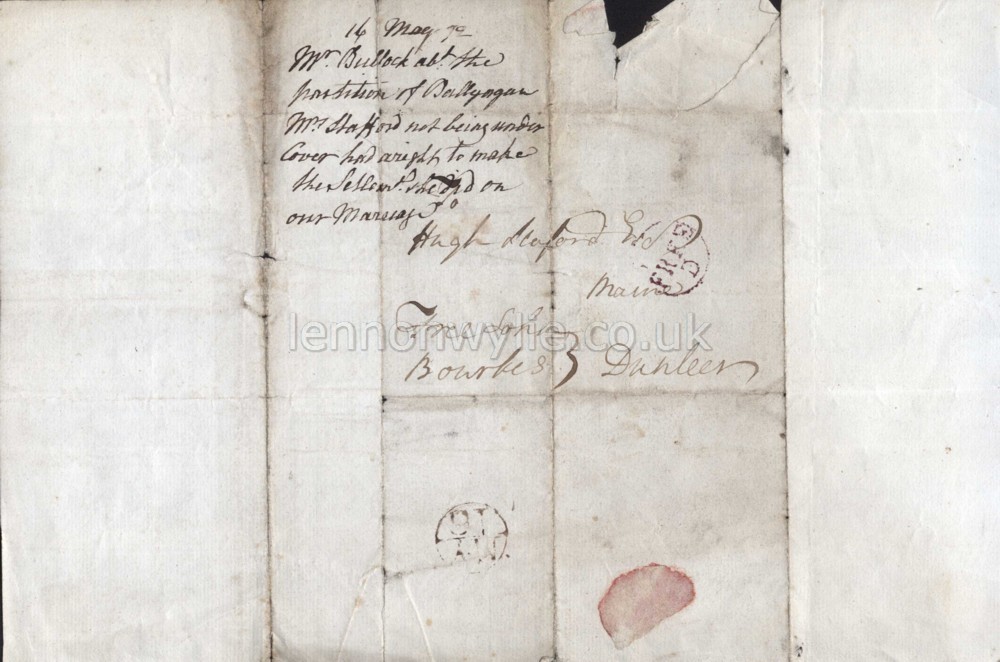 16 May 70
Mr. Bullock abt. the
partition of Ballyagan
Mrs Stafford not being under
Cover had aright to make
the Settlemt. she did on
our Marriage
Hugh Seaford Esqr
FREE
D
Maine
Free John
Bourke 3 Dunleer
lennonwylie.co.uk